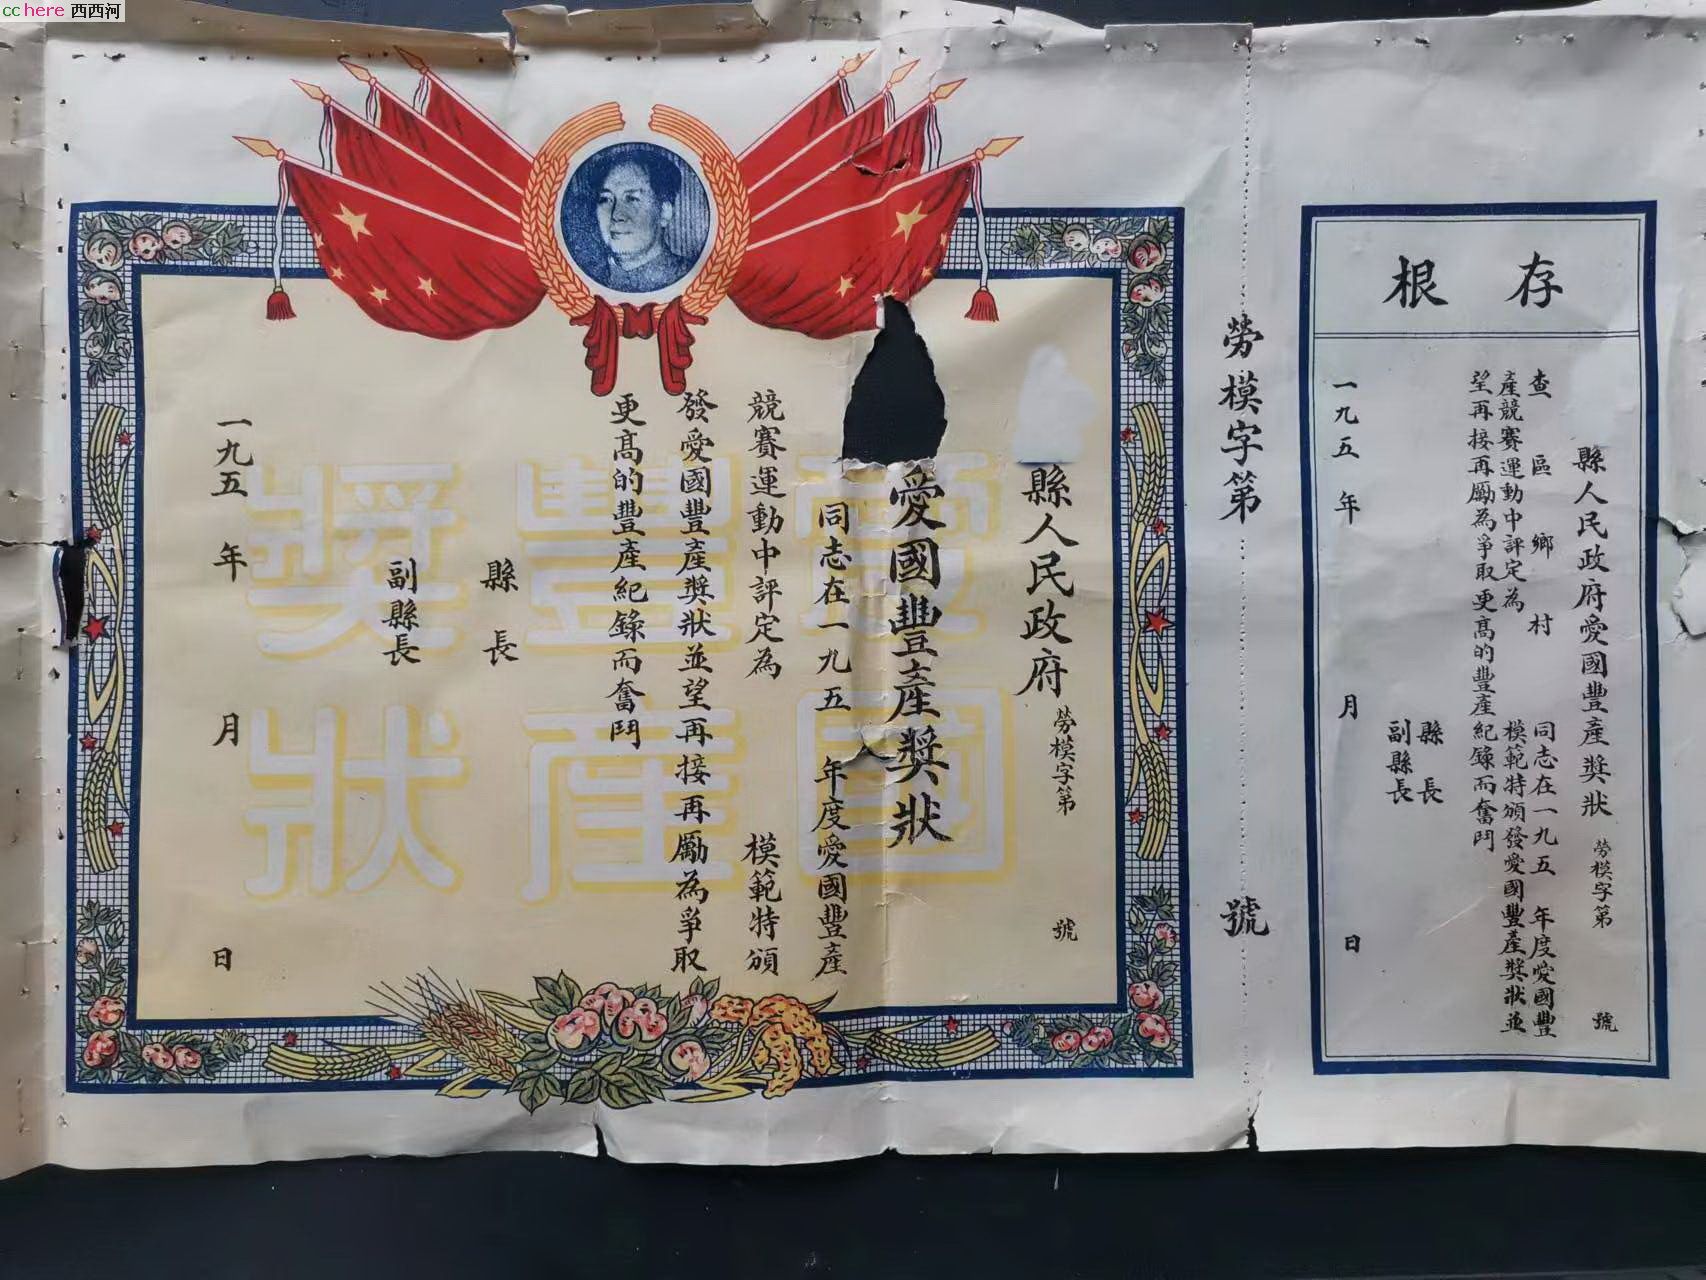 cchere 西西河
存根
縣人民政府愛國豐產獎狀 勞模字第 號
查 區 鄉 村 同志在一九五 年度愛國豐
產競賽運動中評定為 模範特頒發愛國豐產獎狀並
望再接再勵為爭取更高的豐產紀錄而奮鬥
縣 長
副縣長
一九五 年 月 日
勞模字第 號
縣人民政府 勞模字第 號
愛國豐產獎狀
同志在一九五 年度愛國豐產
競賽運動中評定為 模範特頒
發愛國豐產獎狀並望再接再勵為爭取
更高的豐產紀錄而奮鬥
縣 長
副縣長
一九五 年 月 日
愛國
豐產
獎狀